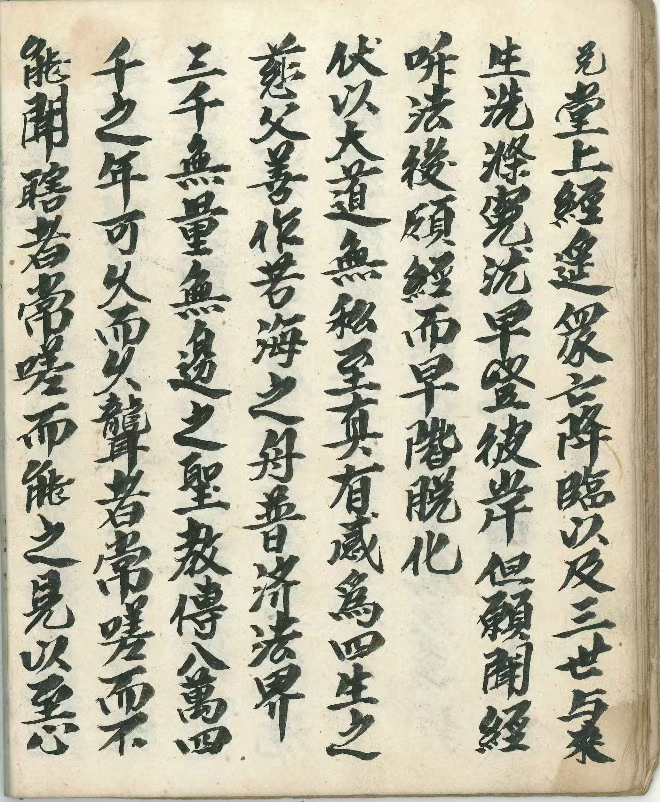 兄堂上經筵眾亡降臨以及三世与衆
生洗滌冤沈早登彼岸但願聞經
听法後頋經而早階脱化
伏以大道無私至真有感為四生之
慈父善作苦海之舟普济法界
三千無量無邉之聖教傳八萬四
千之年可久而久聾者常嗟而不
能聞瞎者常嗟而能之見以至心